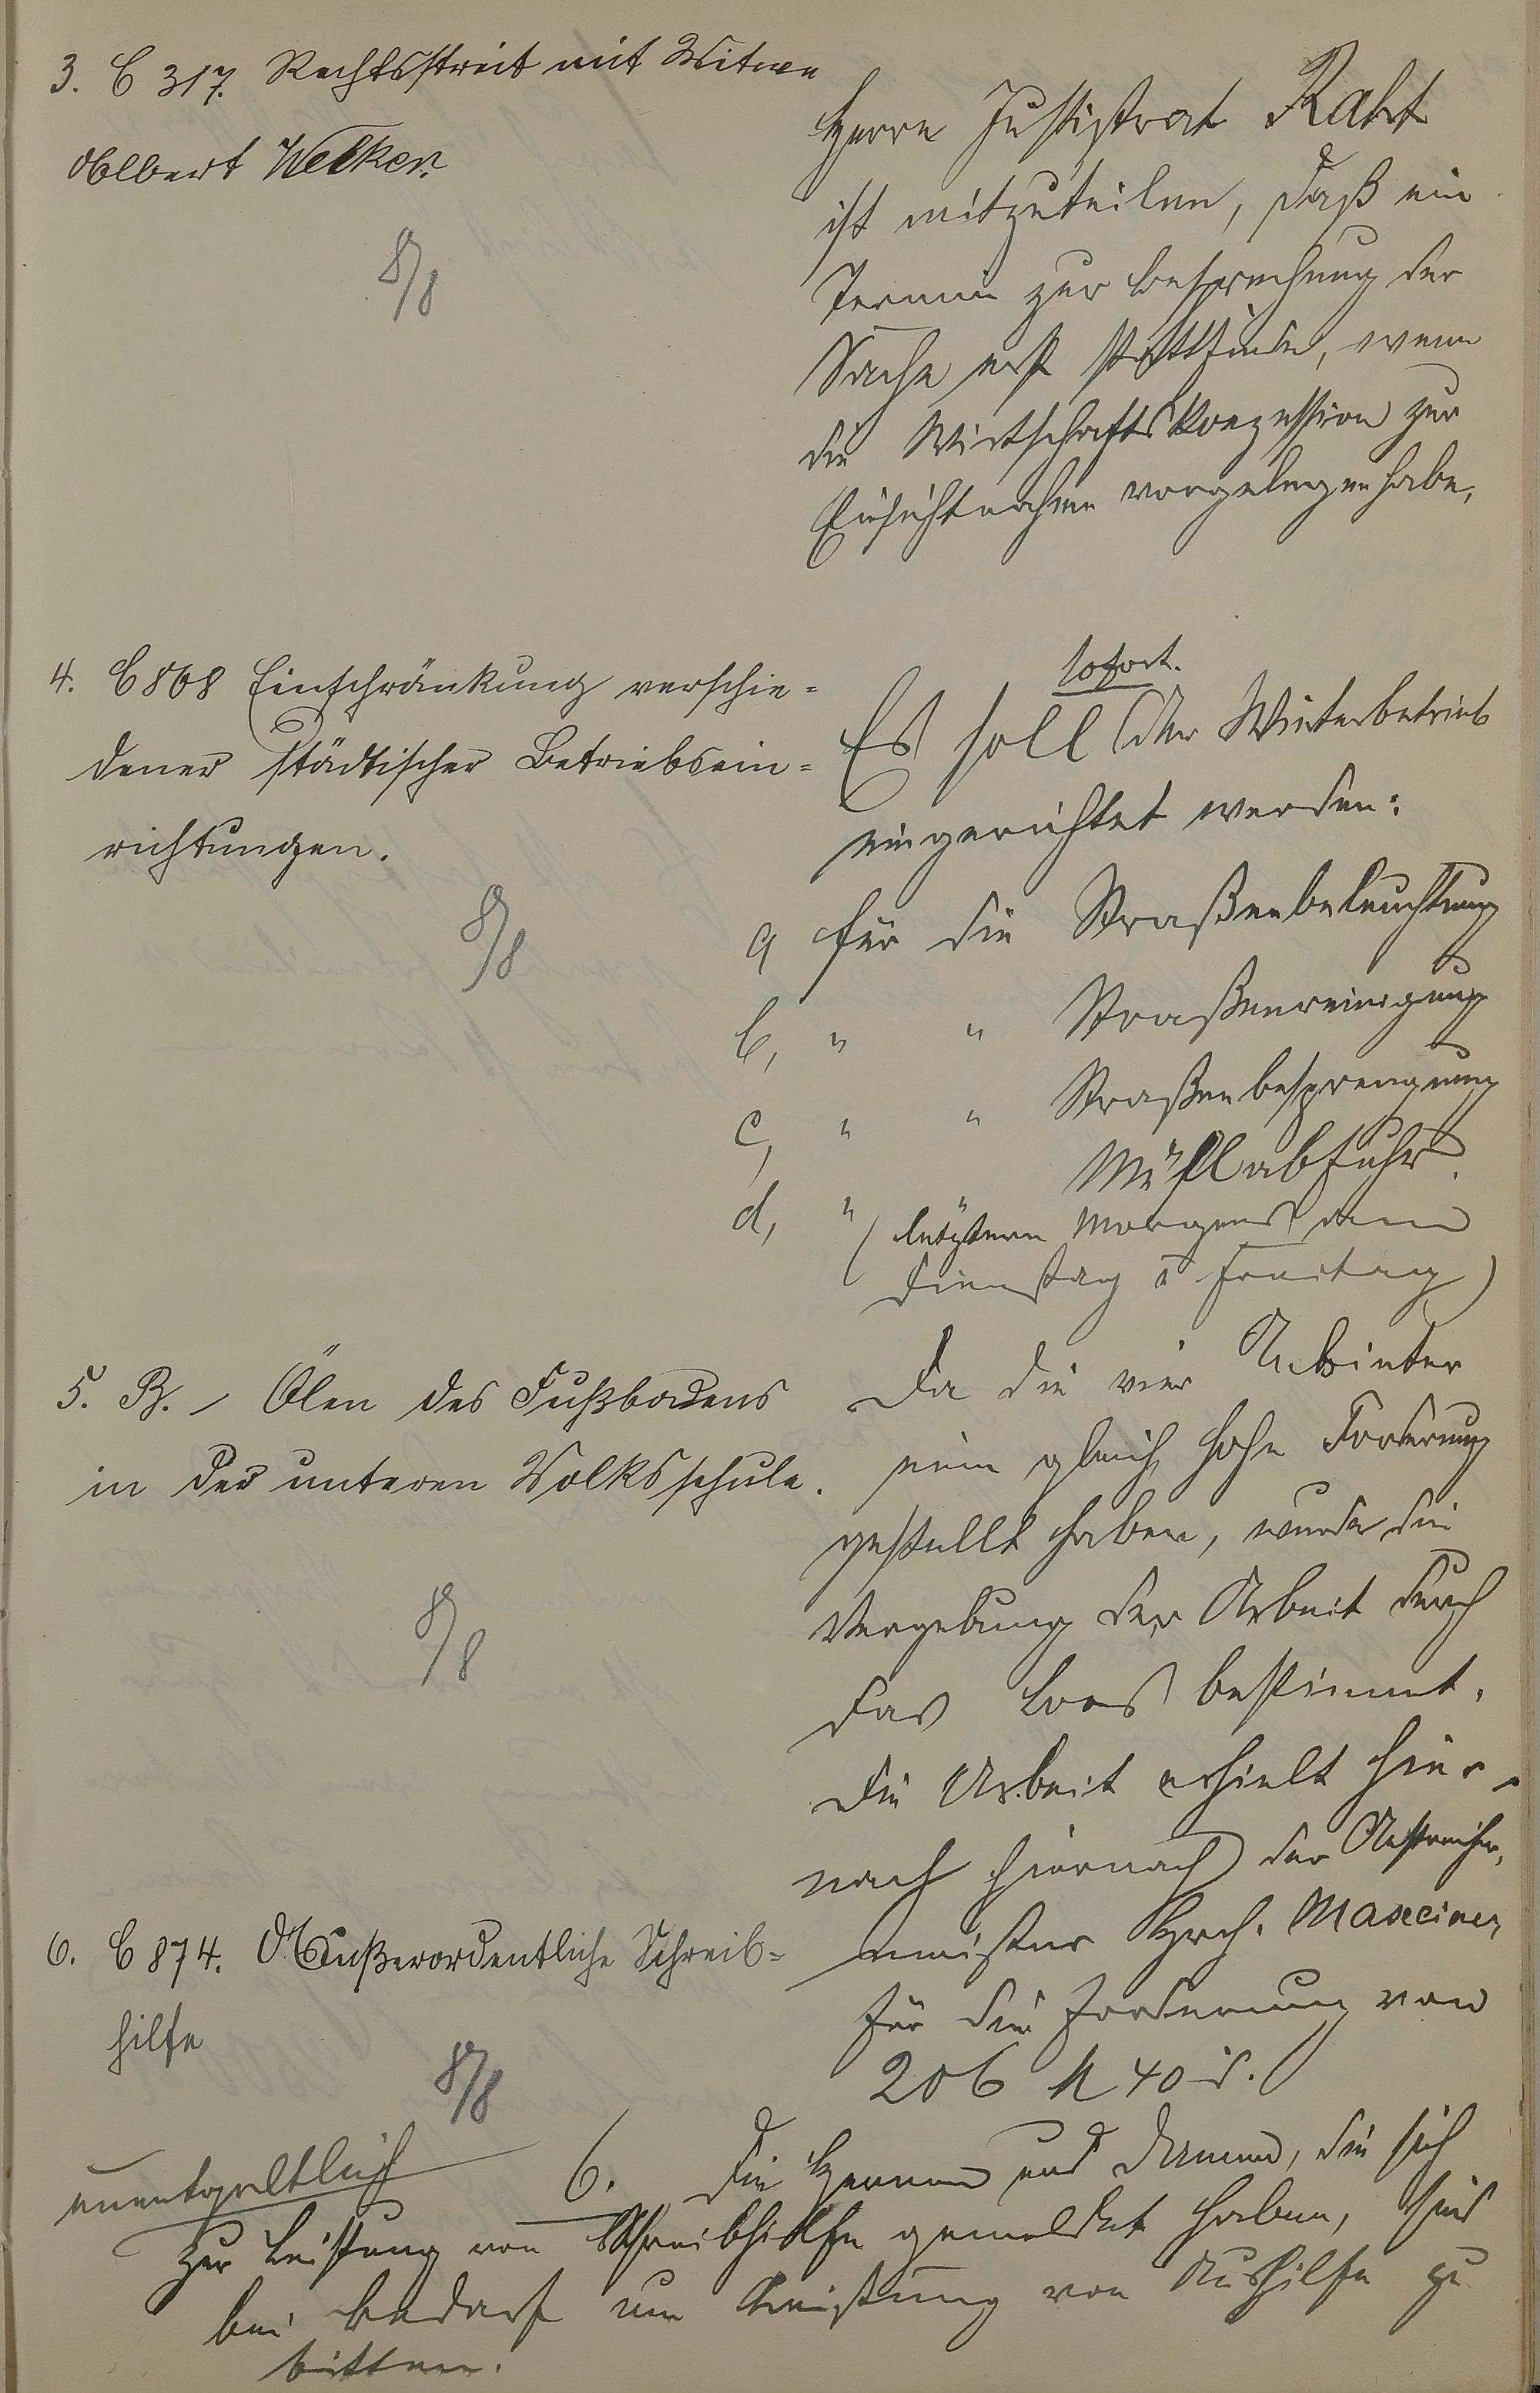 3. C 317. Rechtsstreit mit Witwe
Albert Welker.
8/8
Herrn Justizrat Raht
ist mitzuteilen, daß ein
Termin zur Besprechung der
Sache erst stattfinde, wenn
die Wirtschaftskonzession zur
Einsichtnahme vorgelegen habe.
4. C 868 Einschränkung verschie=
dener städtischer Betriebsein=
richtungen.
8/8
sofort.
Es soll der Winterbetrieb
eingerichtet werden:
a für die Straßenbeleuchtung
b, " " Straßenreinigung
c, " " Straßenbesprengung
d, " " Müllabfuhr.
(letztere Morgens am
Dienstag u Freitag)
5. B. / Ölen des Fußbodens
in der unteren Volksschule.
8/8
Da die vier Anbieter
eine gleich hohe Forderung
gestellt haben, wurde die
Vergebung der Arbeit durch
das Loos bestimmt.
Die Arbeit erhielt hier-
nach hiernach der Anstreicher,
meister Hrch. Maxeiner
für die Forderung von
206 M 40 d.
6. C 874. Außerordentliche Schreib=
hilfe
8/8
6. Die Herren und Damen, die sich
unentgeltlich
zur Leistung von Schreibhilfe gemeldet haben, sind
bei Bedarf um Leistung von Aushilfe zu
bitten.